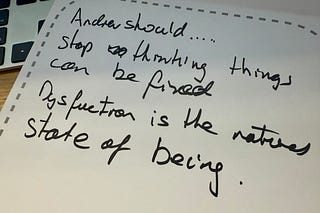 Andrew should....
stop thinking things
can be fixed
Dysfuction is the natures
state of being.